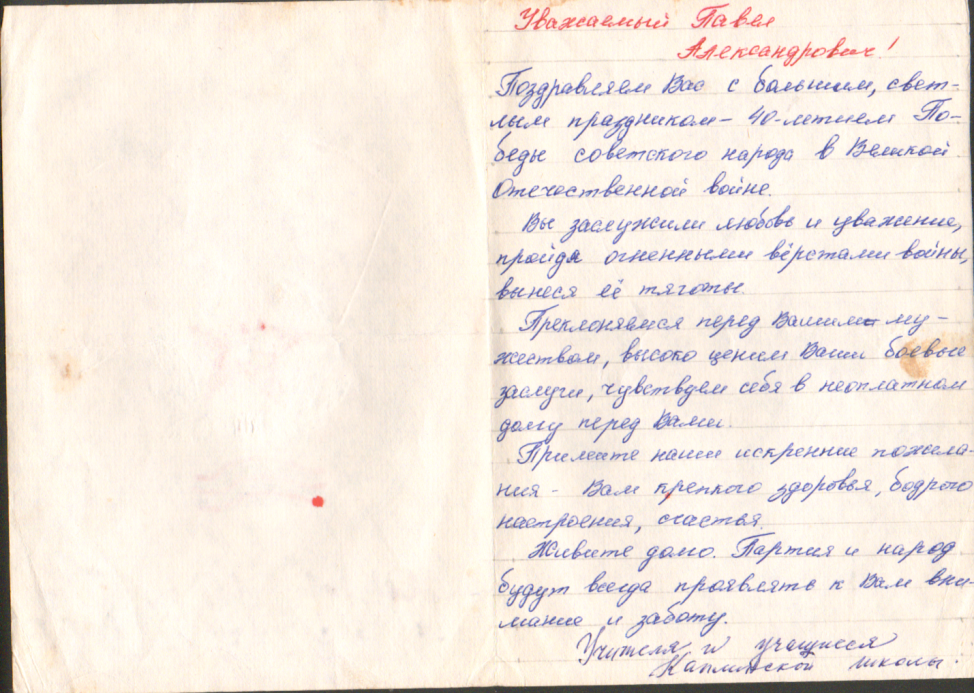 Уважаемый Павел
Александрович!
Поздравляем Вас с большим, свет-
лым праздником – 40-летием По-
беды советского народа в Великой
Отечественной войне.
Вы заслужили любовь и уважение,
пройдя огненными вёрстами войны,
вынеся её тяготы.
Преклоняемся перед Вашим му-
жеством, высоко ценим Ваши боевые
заслуги, чувствуем себя в неоплатном
долгу перед Вами.
Примите наши искренние пожела-
ния – Вам крепкого здоровья, бодрого
настроения, счастья.
Живите долго. Партия и народ
будут всегда проявлять к Вам вни-
мание и заботу.
Учителя и учащиеся
школы.